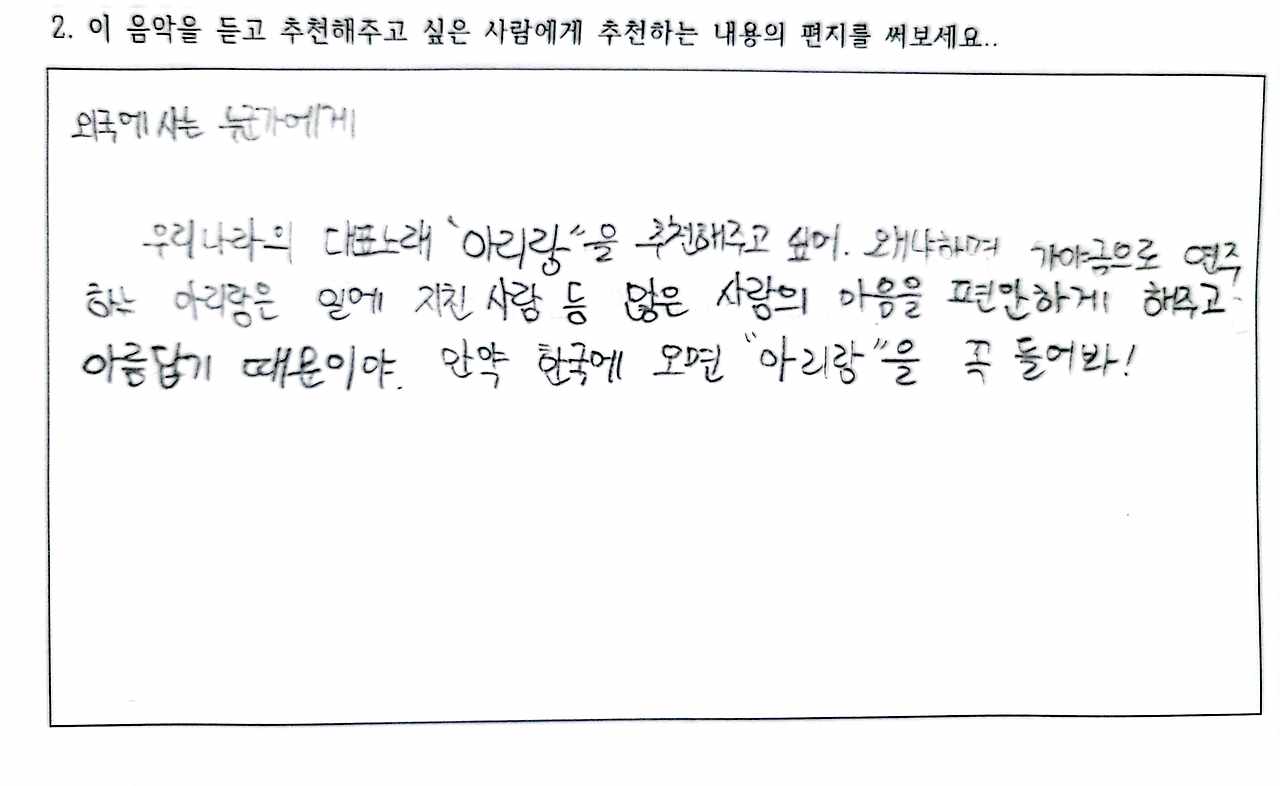 2. 이 음악을 듣고 추천해주고 싶은 사람에게 추천하는 내용의 편지를 써보세요..
외국에 사는 누군가에게
우리나라의 대표노래 "아리랑"을 추천해주고 싶어. 왜냐하며 가야금으로 연주
하는 아리랑은 일에 지친 사람 등 많은 사람의 마음을 편안하게 해주고
아름답기 때문이야. 만약 한국에 오면 "아리랑"을 꼭 들어봐!